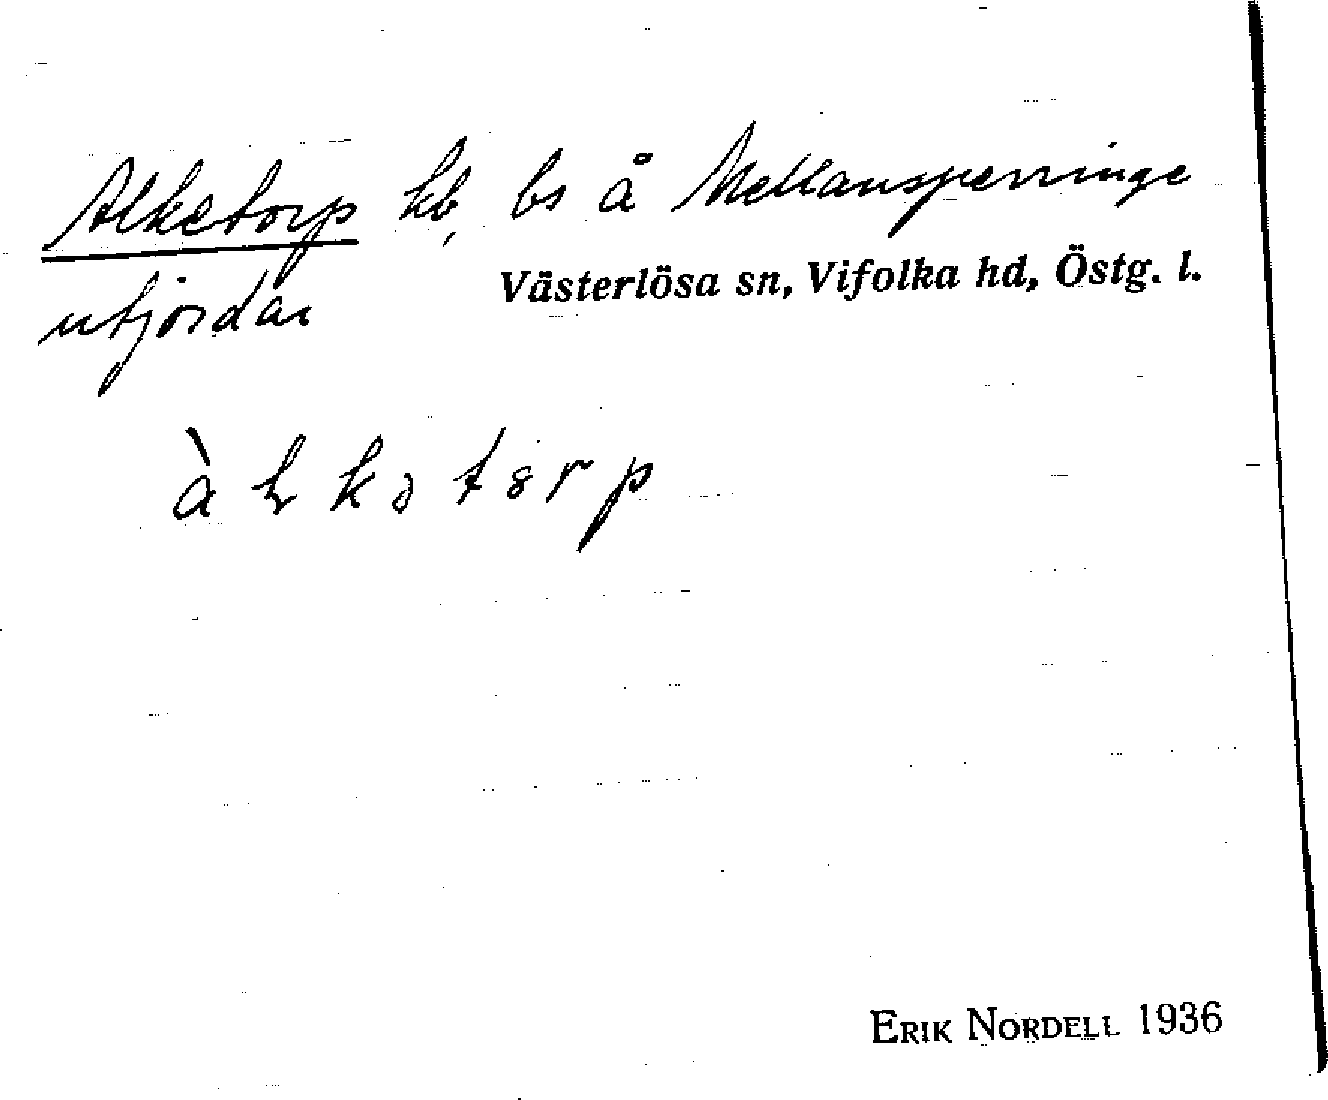 Alketorp hb, bs å Mellansperringe
utjordar
Västerlösa sn, Vifolka hd, Östg. l.
ERIK NORDELL 1936